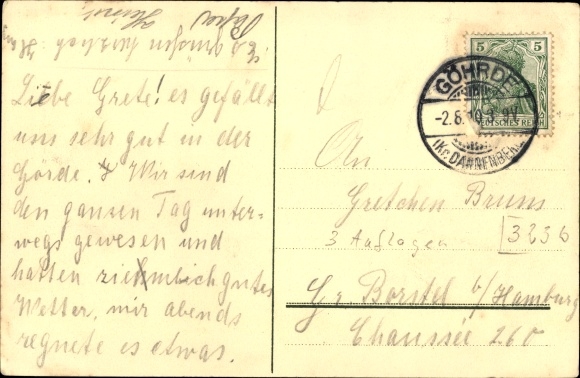 Liebe Grete! es gefällt
uns sehr gut in der
Görde. Wir sind
den gansen Tag unter-
wegs gewesen und
hatten ziemlich gutes
Wetter, nur abends
regnete es etwas.
5 5
DEUTSCHES REICH
GÖHRDE
-2.8.10.
(Kr. DANNENBERG)
An
Gretchen Bruns
3 Auflagen [3236
Gr Borstel b/Hamburg
Chaussée 260